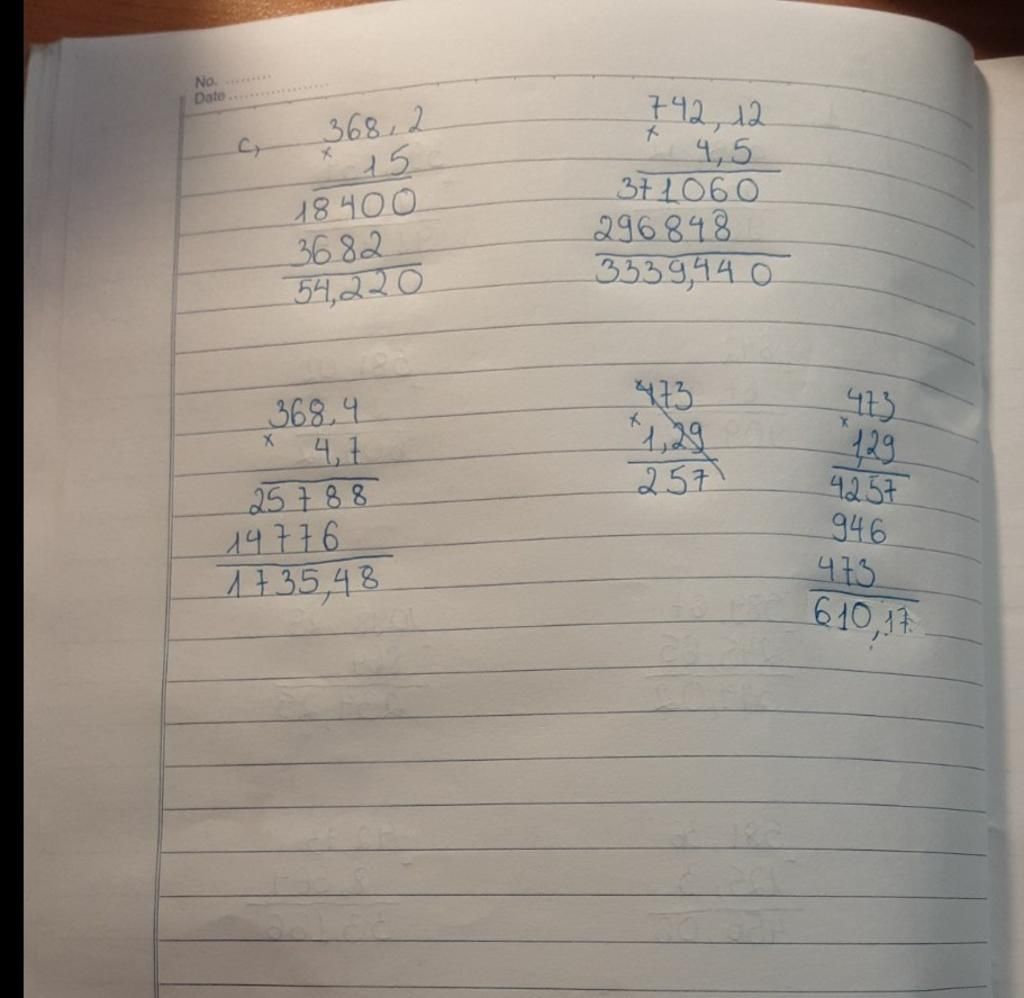 No. ..........
Date ....................
c, 368,2
x 15
18400
3682
54,220
742,12
x 4,5
371060
296848
3339,440
368,4
x 4,7
25788
14776
1735,48
473
x 1,29
257
473
x 1,29
4257
946
473
610,17